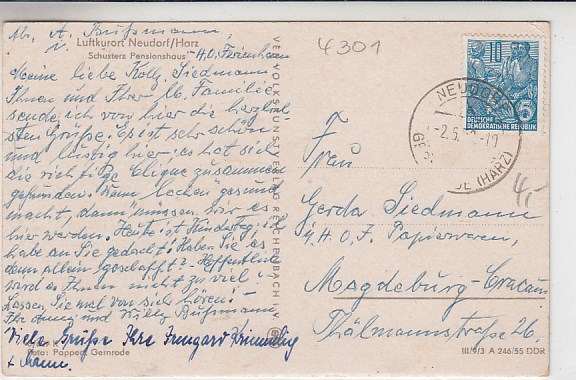 Abs. A. Bußmann,
z.
Luftkurort Neudorf/Harz
Schusters Pensionshaus
- H.O. Ferienheim
Meine liebe Kollg. Siedmann,
Ihnen und Ihrer lb. Familie
sende ich von hier die herzlich-
sten Grüße. Es ist sehr schön
und lustig hier, es hat sich
die richtige Clique zusammen
gefunden. Wenn lachen gesund
macht, dann müssen wir es
hier werden. Heute ist Kindertag, ich
habe an Sie gedacht. Haben Sie es
denn allein geschafft? Hoffentlich
wird es Ihnen nicht zu viel!
Lassen Sie mal von sich hören!
Ihr und Willy Bußmann
Viele Grüße Ihre Irmgard
+ Mann.
Foto: Poppert, Gernrode
VEB VOLKSKUNSTVERLAG REICHENBACH I. V.
4301
10
5
DEUTSCHE
DEMOKRATISCHE REPUBLIK
NEUDORF
(HARZ)
4,-
Frau
Gerda Siedmann
i. H.O.F. Papierwaren,
Magdeburg-Cracau
Thälmannstraße 26.
III/9/3 A 246/55 DDR